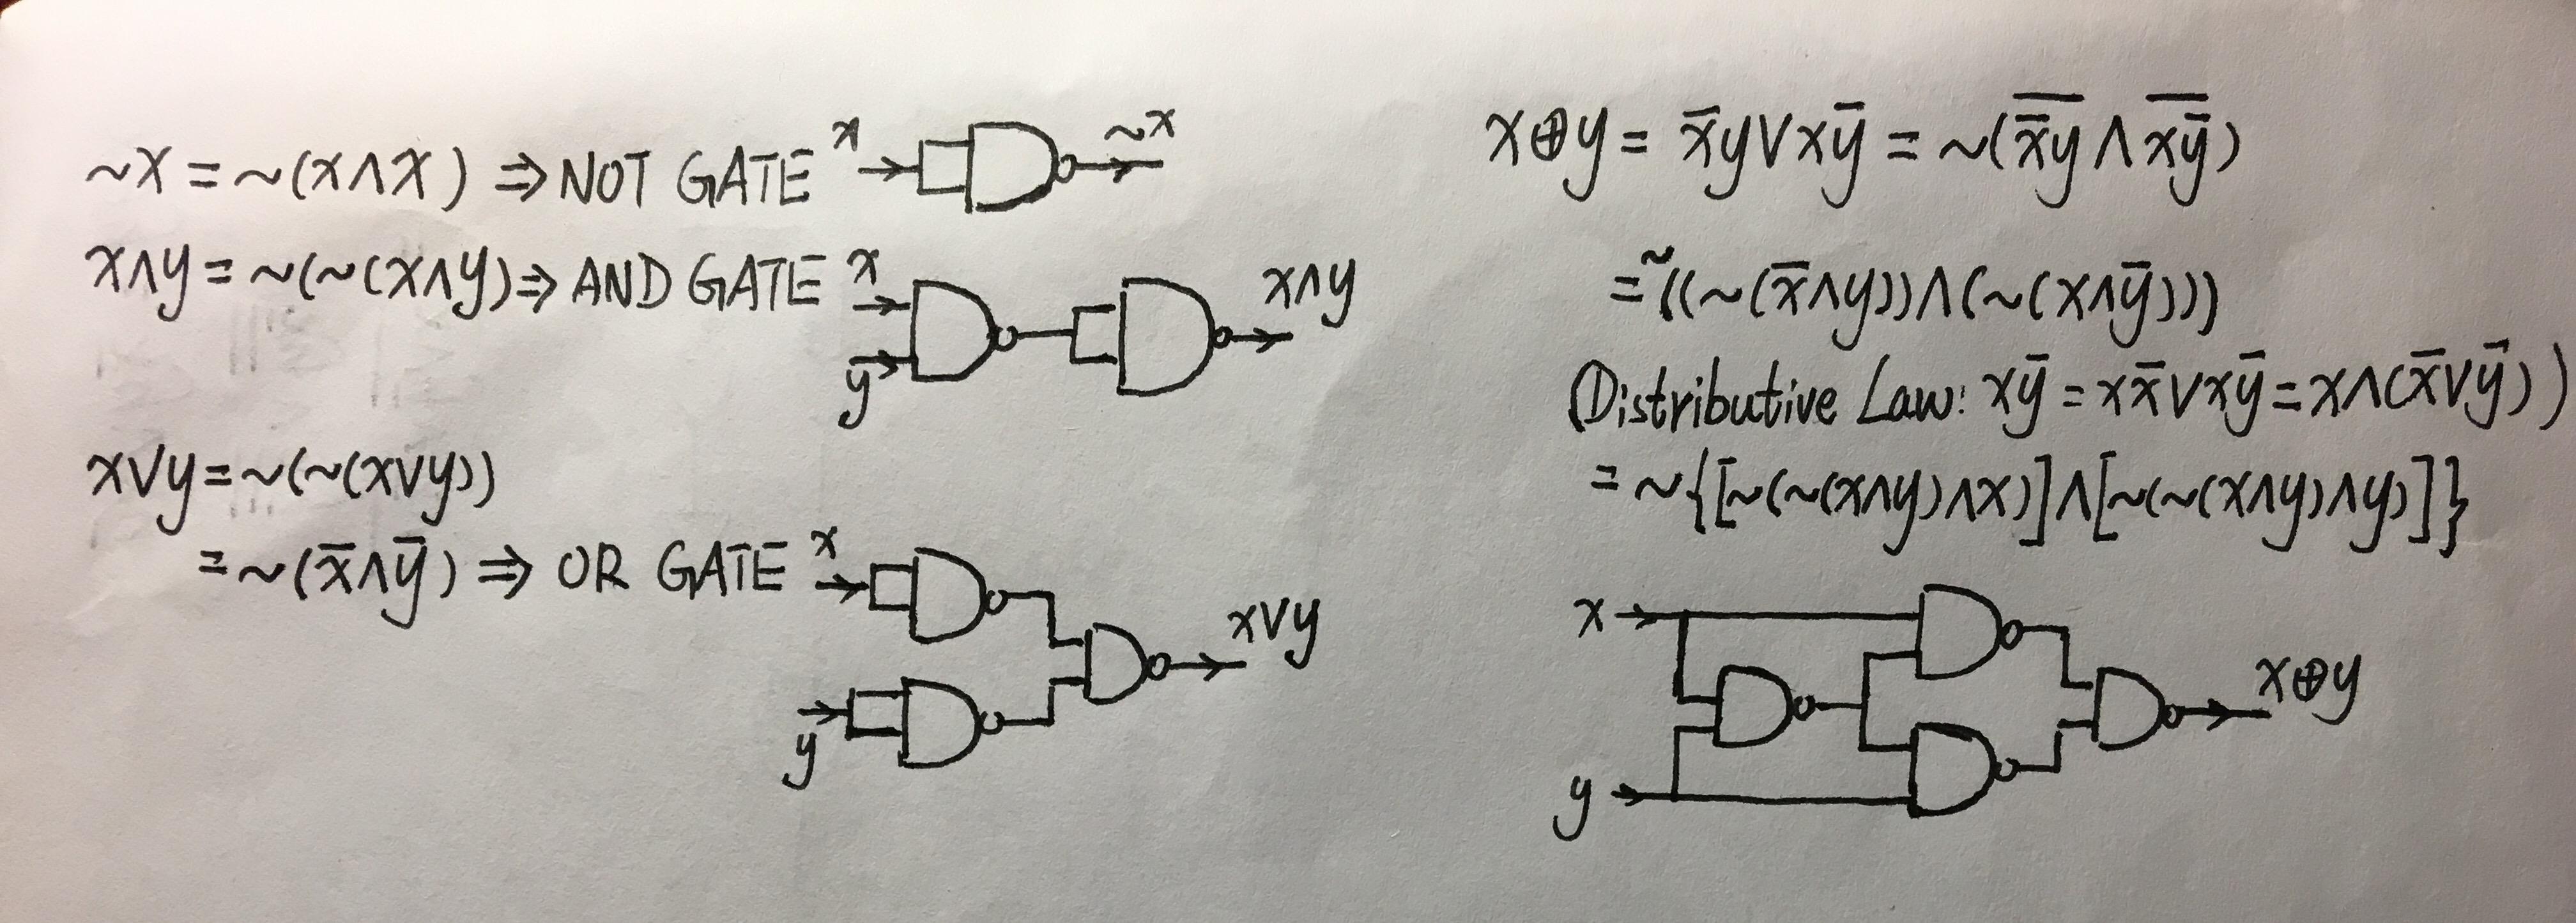 ~x = ~(x∧x) ⇒ NOT GATE x ~x
x∧y = ~(~(x∧y) ⇒ AND GATE x
y
x∧y
x∨y = ~(~(x∨y))
= ~(x̅∧y̅) ⇒ OR GATE x
y
x∨y
x⊕y = x̅y∨xy̅ = ~(\overline{x̅y} ∧ \overline{xy̅})
= ~((~(x̅∧y))∧(~(x∧y̅)))
(Distributive Law: xy̅ = xx̅∨xy̅ = x∧(x̅∨y̅))
= ~{[~(~(x∧y)∧x)]∧[~(~(x∧y)∧y)]}
x
y
x⊕y